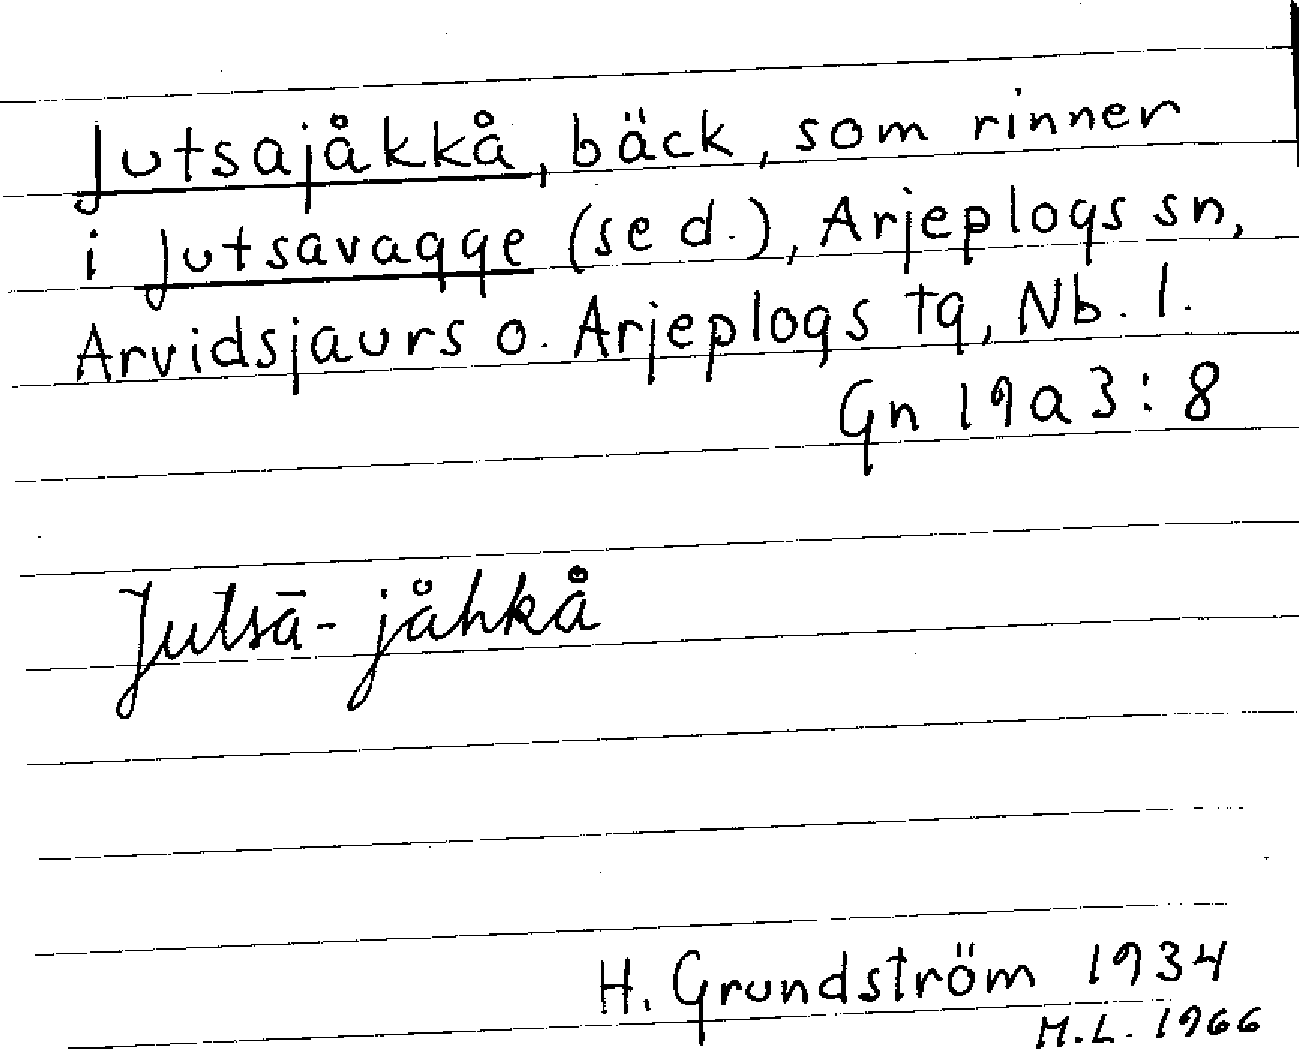 Jutsajåkkå, bäck, som rinner
i Jutsavagge (se d.), Arjeplogs sn,
Arvidsjaurs o. Arjeplogs tg, Nb. l.
Gn 19a3:8
Jutsā-jåhkå
H. Grundström 1934
M.L. 1966